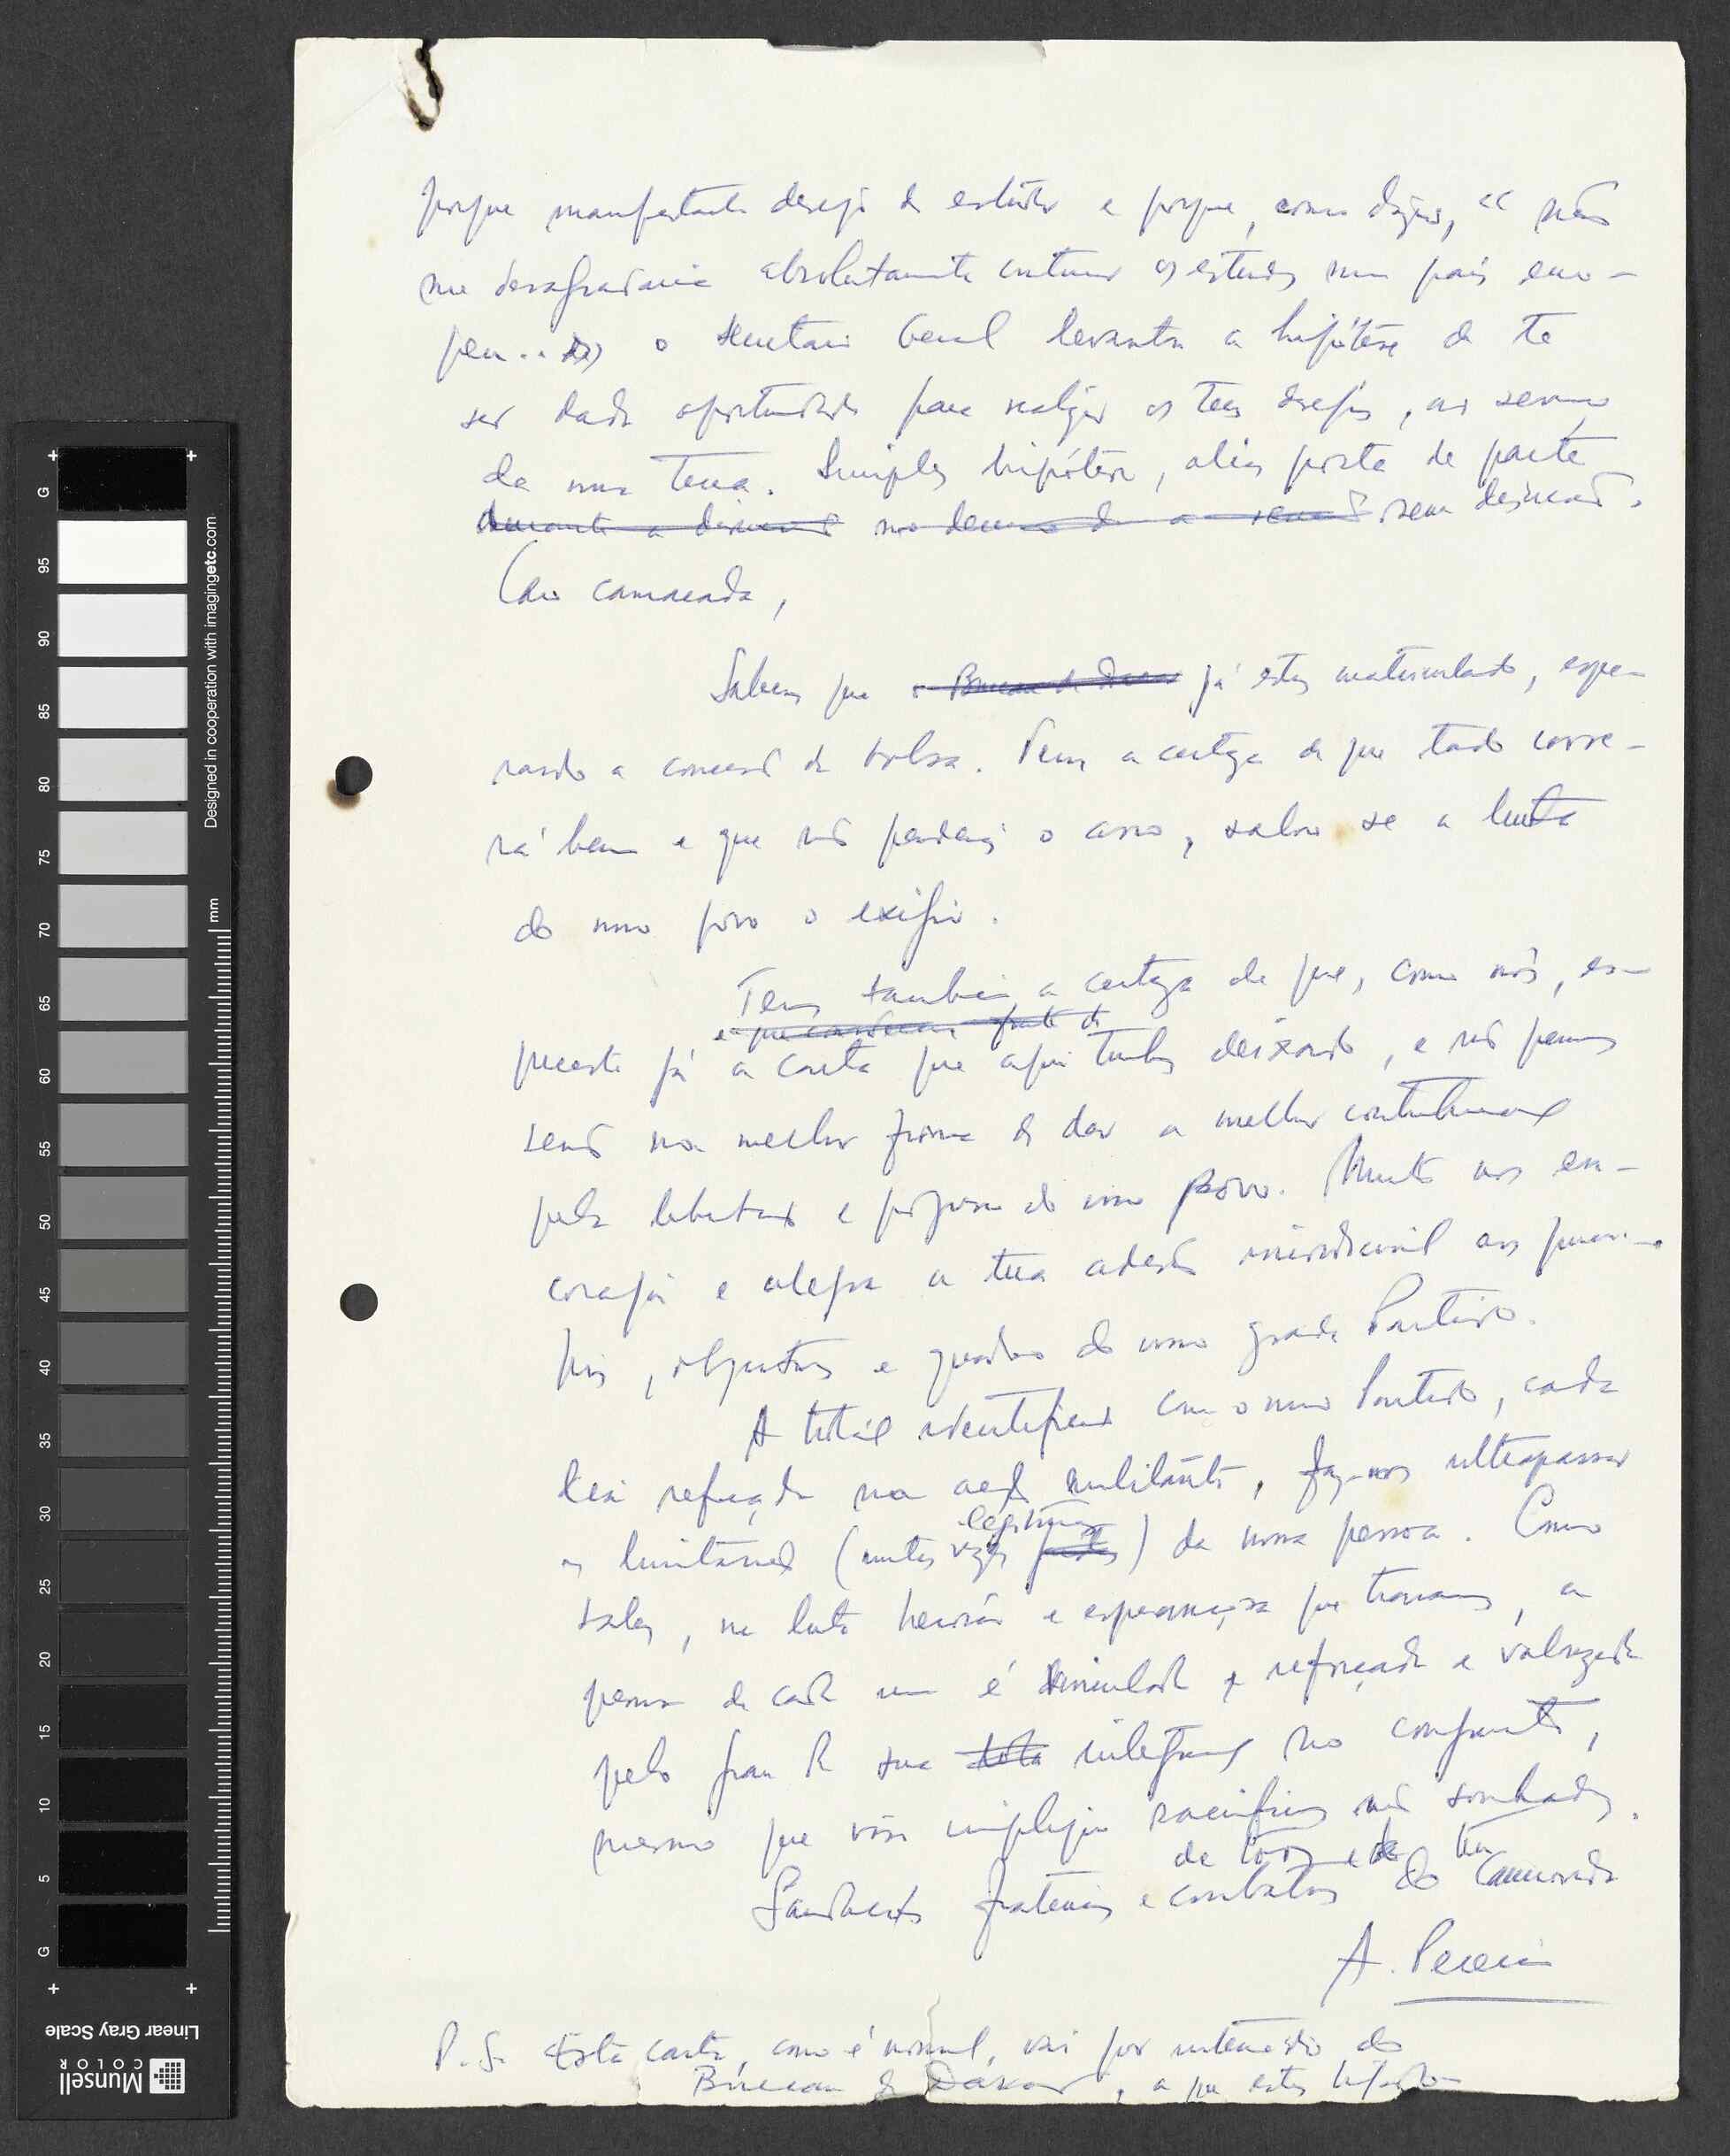 porque manifestaste desejo de estudar e porque, como dizias, "não
me desagradaria absolutamente continuar os estudos num país euro-
peu..." o Secretário Geral levantou a hipótese de te
ser dada oportunidade para realizar os teus desejos, ao serviço
da nossa terra. Simples hipótese, aliás posta de parte
durante a discussão no decurso da a reunião sem discussão.
Caro camarada,
Sabemos que o Bureau de Dacar já estás matriculado, espe-
rando a concessão da bolsa. Temos a certeza de que tudo corre-
rá bem e que não perderás o ano, salvo se a luta
do nosso povo o exigir.
Temos também a certeza de que, como nós, es-
e que consideras parte da
queceste já a carta que aqui tinhas deixado, e não pensas
senão na melhor forma de dar a melhor contribuição
pela libertação e progresso do nosso povo. Muito nos en-
coraja e alegra a tua adesão incondicional aos princí-
pios, objectivos e do nosso grande Partido.
A total identificação com o nosso Partido, cada
dia reforçada na acção militante, faz-nos ultrapassar
legítimas
as limitações (muitas vezes) da nossa pessoa. Como
sabes, na luta heróica e esperançosa que travamos, a
pessoa de cada um é reforçada e valorizada
pelo grau da sua total integração no conjunto,
mesmo que isso implique sacrifícios não sonhados.
de todos e do teu
Saudações fraternais e combativas do Camarada
A. Pereira
P.S. Esta carta, como é normal, vai por intermédio do
Bureau de Dakar, a que estás ligado